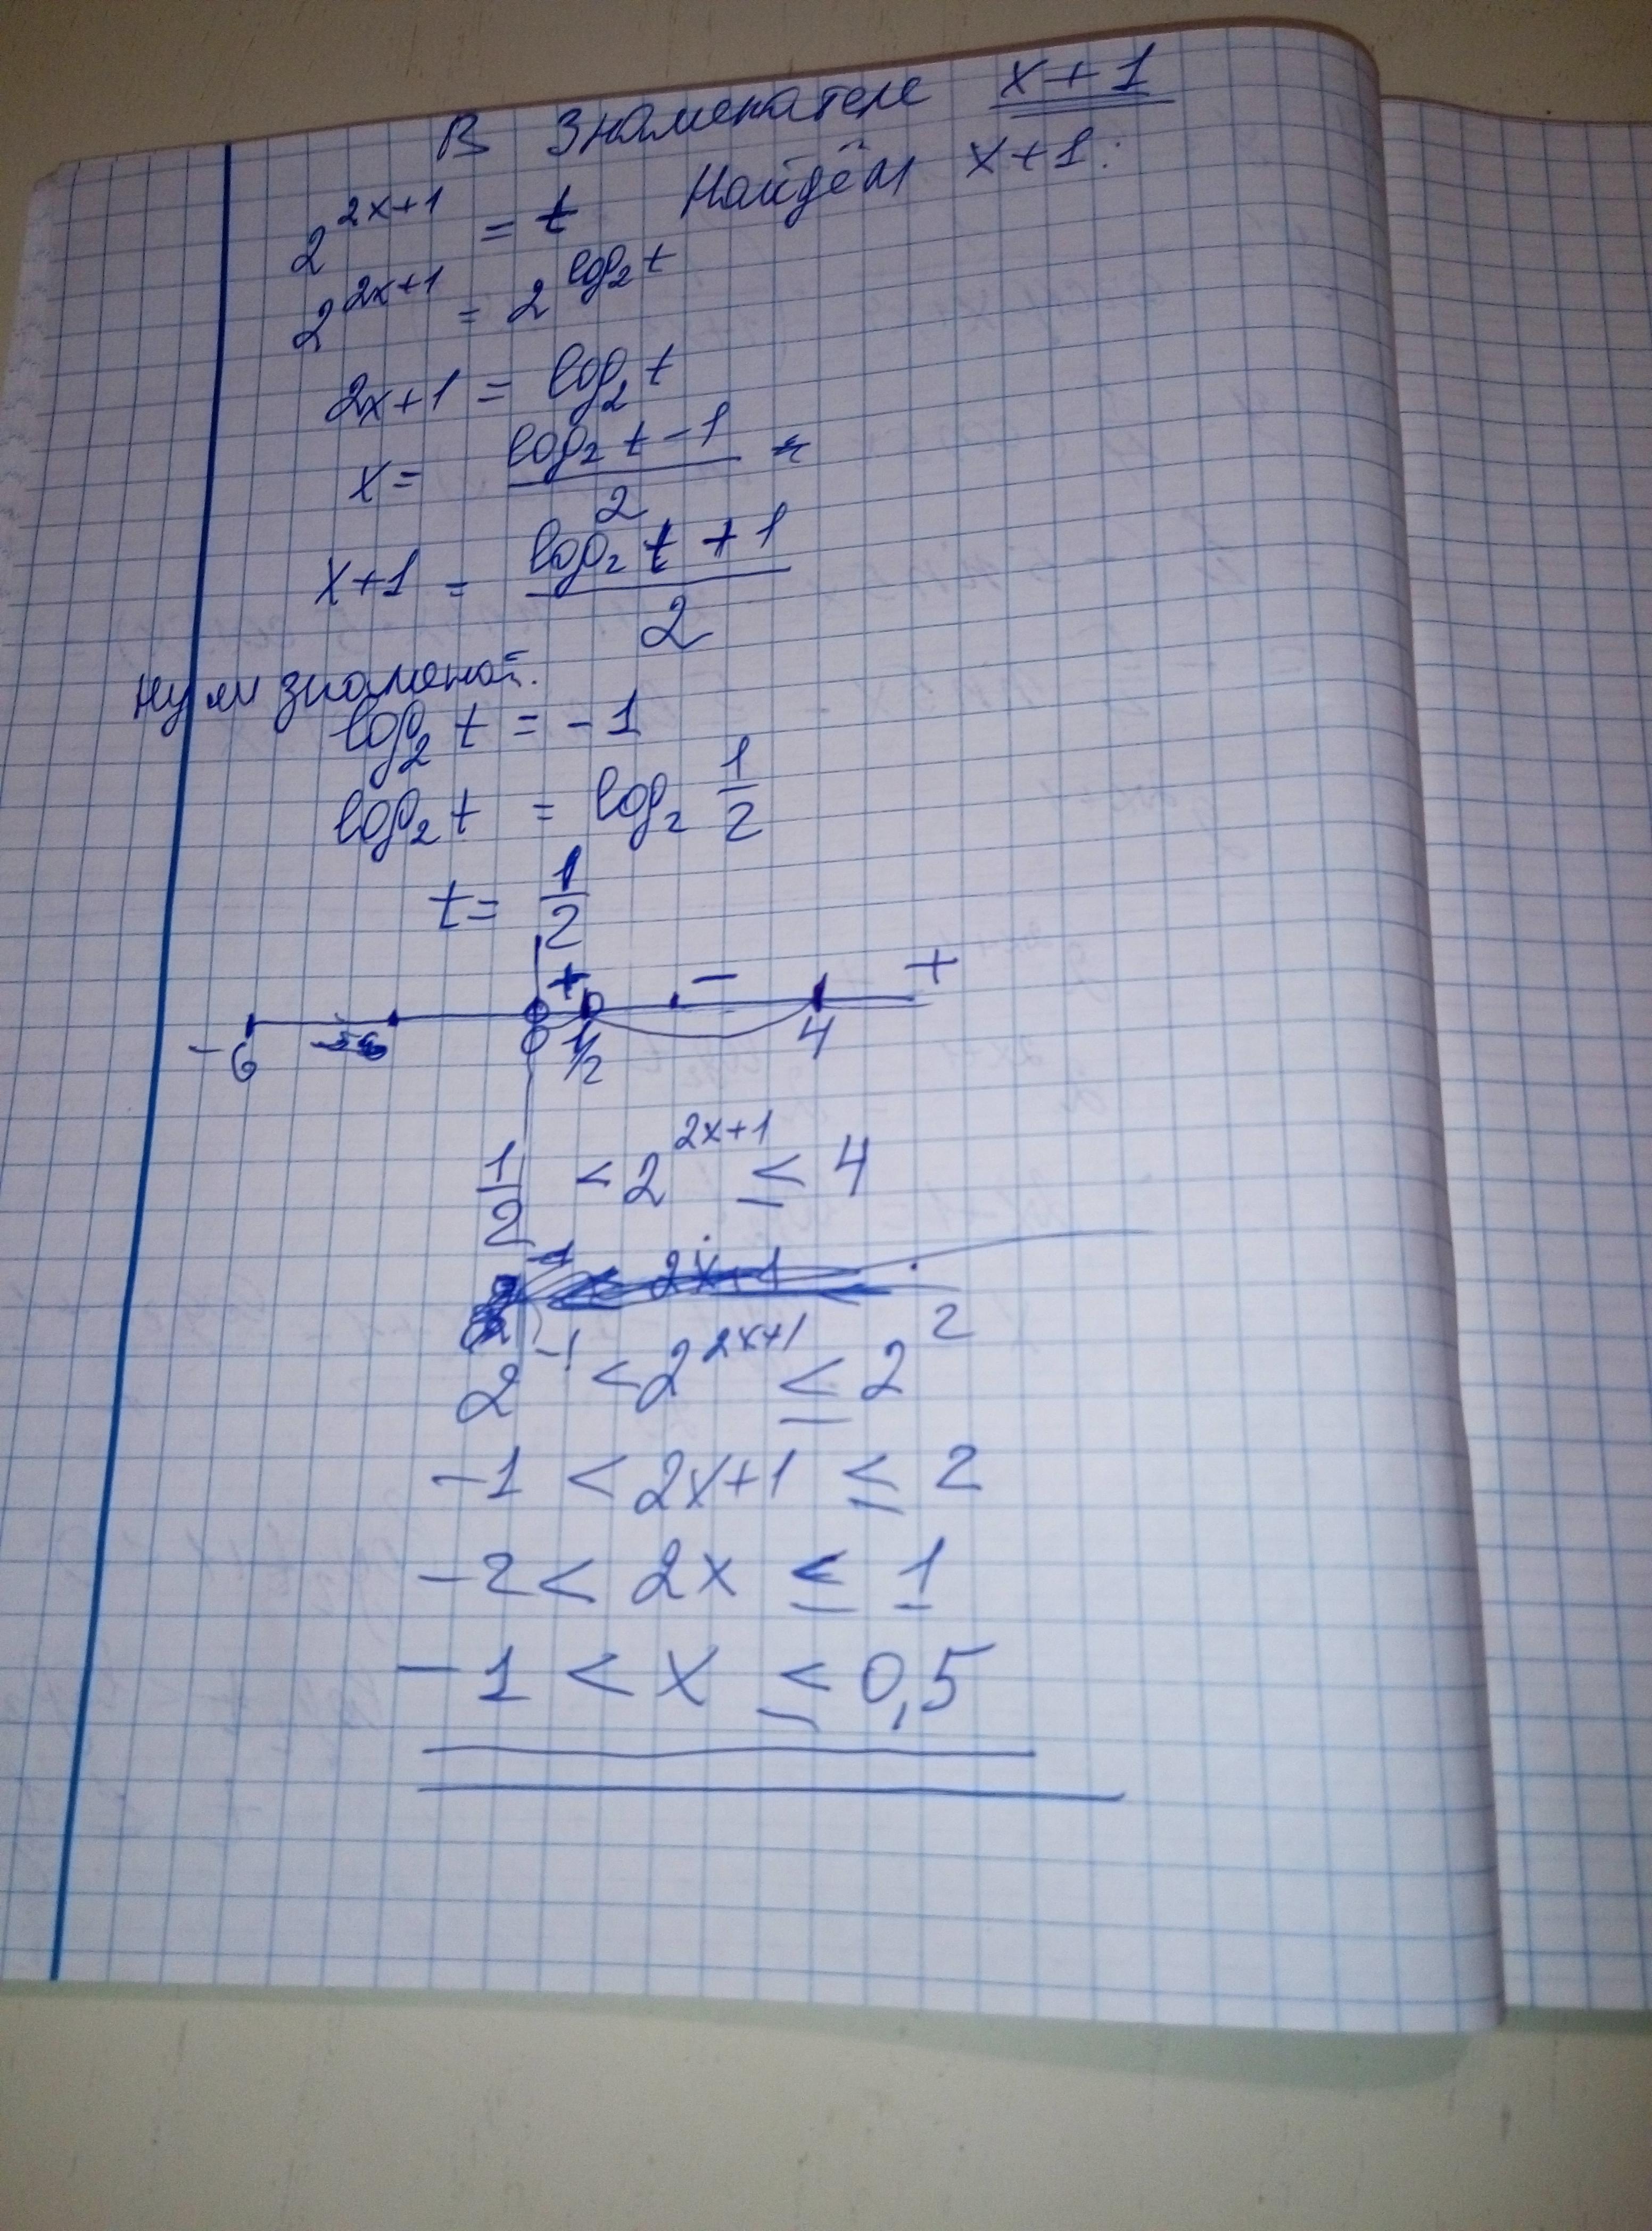 В знаменателе x+1
Найдём x+1:
2^{2x+1} = t
2^{2x+1} = 2^{log₂t}
2x+1 = log₂t
x = \frac{log₂t-1}{2}
x+1 = \frac{log₂t+1}{2}
нули знаменат.
log₂t = -1
log₂t = log₂\frac{1}{2}
t = \frac{1}{2}
+ - +
-6 0 1/2 4
\frac{1}{2} < 2^{2x+1} ≤ 4
2^{-1} < 2^{2x+1} ≤ 2^{2}
-1 < 2x+1 ≤ 2
-2 < 2x ≤ 1
-1 < x ≤ 0,5